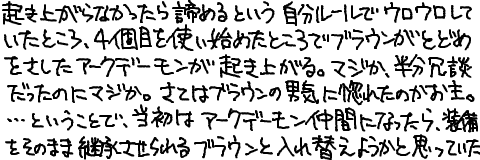 起き上がらなかったら諦めるという自分ルールでウロウロして
いたところ、4個目を使い始めたところでブラウンがとどめ
をさしたアークデーモンが起き上がる。マジか、半分冗談
だったのにマジか。さてはブラウンの男気に惚れたのかお主。
…ということで、当初はアークデーモン仲間になったら、装備
をそのまま継承させられるブラウンと入れ替えようかと思っていた